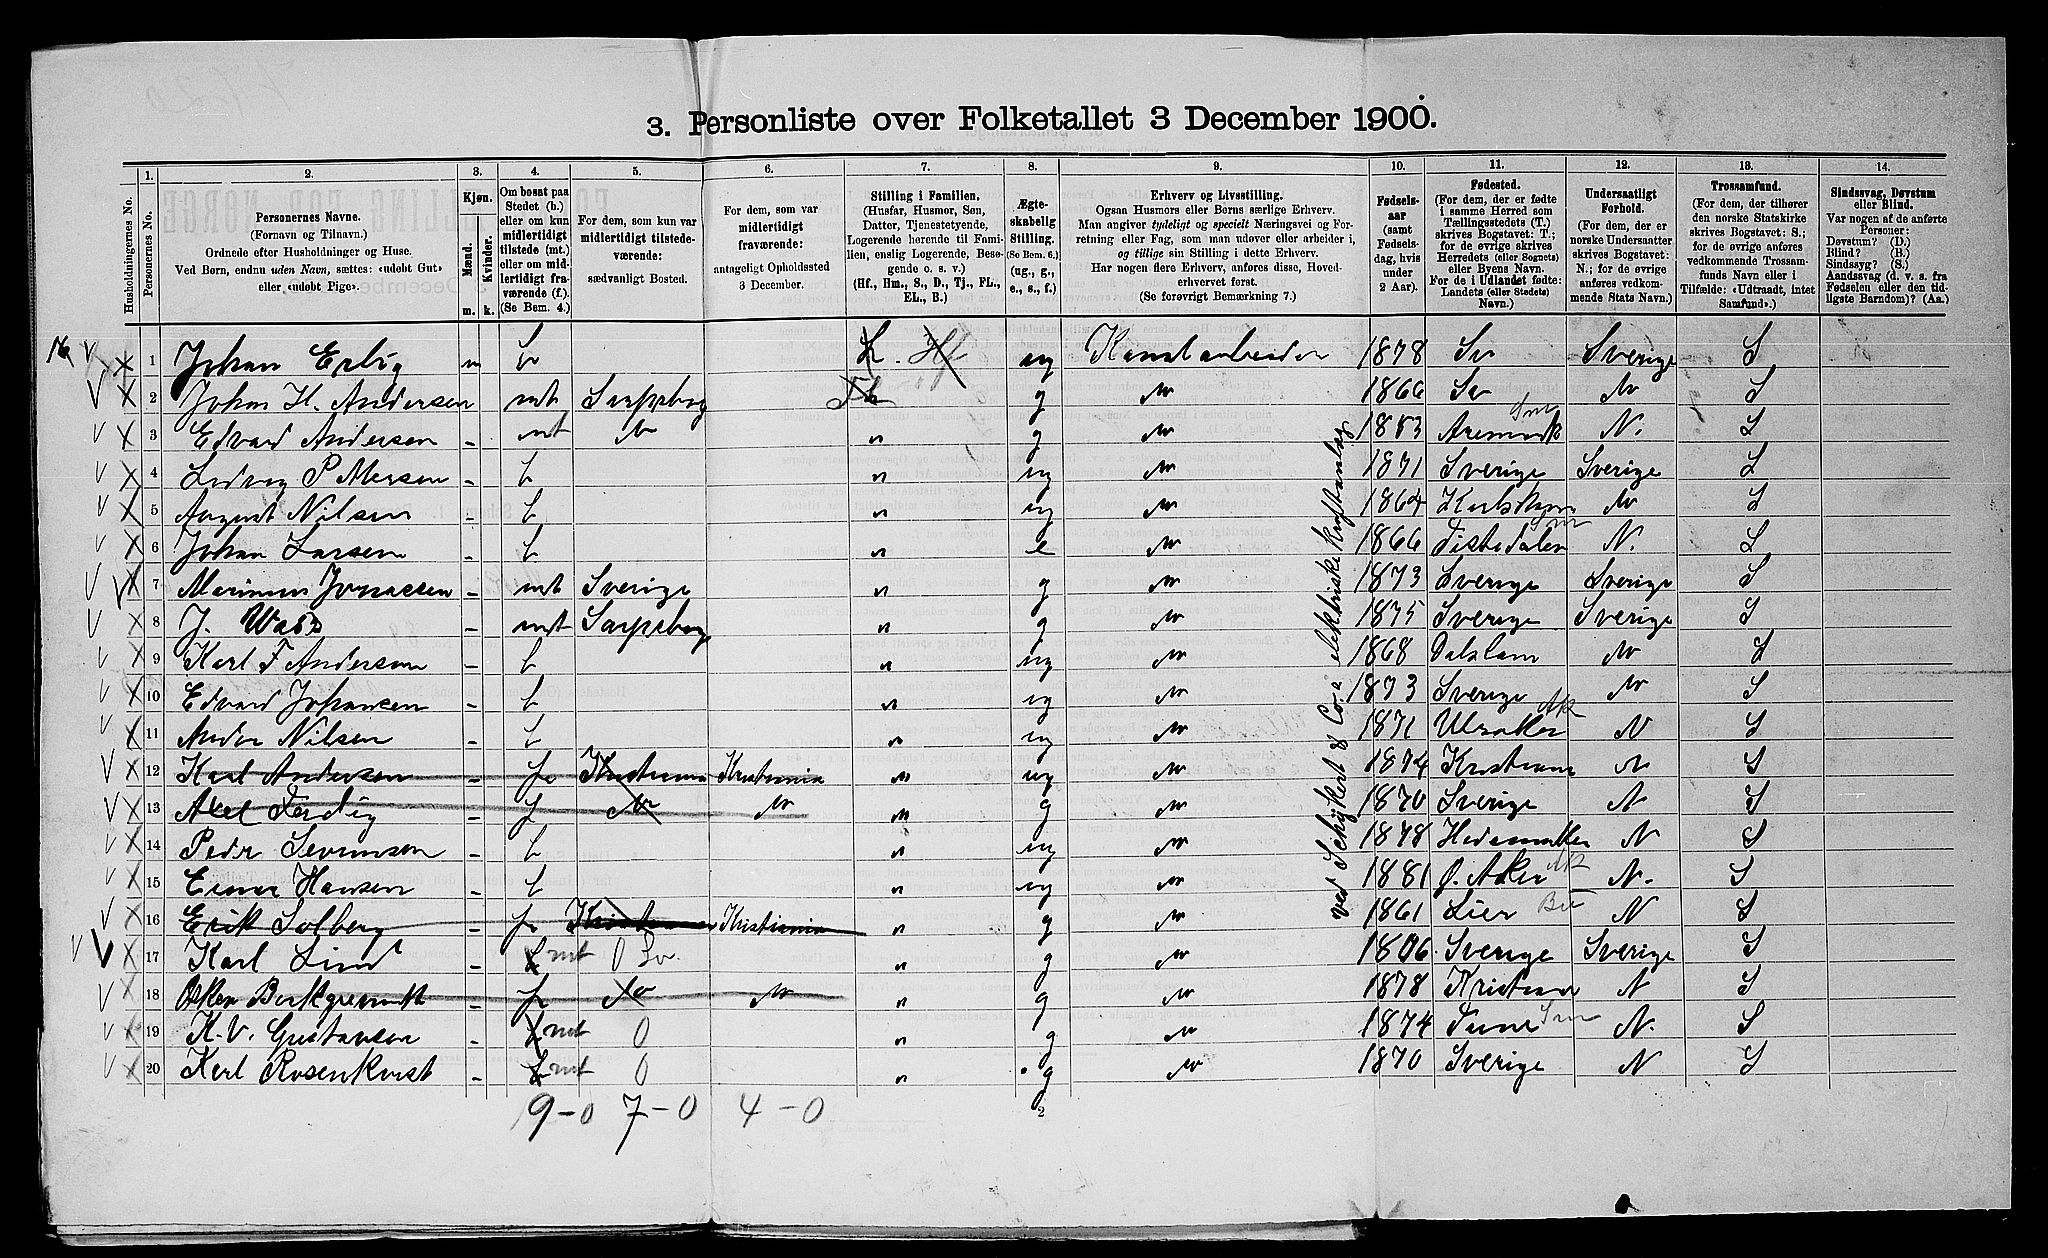 3. Personliste over Folketallet 3 December 1900.
Husholdningernes No.
1. Personernes No.
2. Personernes Navne. (Fornavn og Tilnavn.) Ordnede efter Husholdninger og Huse. Ved Børn, endnu uden Navn, sættes: «udøbt Gut» eller «udøbt Pige».
3. Kjøn. Mænd. m. Kvinder. k.
4. Om bosat paa Stedet (b.) eller om kun midlertidigt tilstede (mt.) eller om midlertidigt fraværende (f.) (Se Bem. 4.)
5. For dem, som kun var midlertidigt tilstedeværende: sædvanligt Bosted.
6. For dem, som var midlertidigt fraværende: antageligt Opholdssted 3 December.
7. Stilling i Familien. (Husfar, Husmor, Søn, Datter, Tjenestetyende, Logerende hørende til Familien, enslig Logerende, Besøgende o. s. v.) (Hf., Hm., S., D., Tj., FL., EL., B.)
8. Ægteskabelig Stilling. (Se Bem. 6.) (ug., g., e., s., f.)
9. Erhverv og Livsstilling. Ogsaa Husmors eller Børns særlige Erhverv. Man angiver tydeligt og specielt Næringsvei og Forretning eller Fag, som man udøver eller arbeider i, og tillige sin Stilling i dette Erhverv. Har nogen flere Erhverv, anføres disse, Hovederhvervet først. (Se forøvrigt Bemærkning 7.)
10. Fødselsaar (samt Fødselsdag, hvis under 2 Aar).
11. Fødested. (For dem, der er fødte i samme Herred som Tællingsstedets (T.) skrives Bogstavet: T.; for de øvrige skrives Herredets (eller Sognets) eller Byens Navn. For de i Udlandet fødte: Landets (eller Stedets) Navn.)
12. Undersaatligt Forhold. (For dem, der er norske Undersaatter skrives Bogstavet: N.; for de øvrige anføres vedkommende Stats Navn.)
13. Trossamfund. (For dem, der tilhører den norske Statskirke skrives Bogstavet: S.; for de øvrige anføres vedkommende Trossamfunds Navn eller i Tilfælde: «Udtraadt, intet Samfund».)
14. Sindssvag, Døvstum eller Blind. Var nogen af de anførte Personer: Døvstum? (D.) Blind? (B.) Sindssyg? (S.) Aandssvag (d. v. s. fra Fødselen eller den tidligste Barndom)? (Aa.)
16 1 Johan m b L. Hf ug Kanalarbeider 1878 Sv Sverige S
2 Johan H. Andersen mt Sarpsborg g 1866 Sv S
3 Edvard Andersen mt " g 1853 Aremark Sm N. S
4 Ludvig b " ug 1871 Sverige Sverige S
5 August Nilsen b " ug 1864 S
6 Johan Larsen b " e 1866 Tistedalen Sm N. S
7 Marinius Jonassen mt Sverige " g 1873 Sverige Sverige S
8 J. mt Sarpsborg " g 1875 Sverige Sverige S
9 Karl F Andersen b " ug 1868 Dalsland S
10 Edvard Johansen b " ug 1873 Sverige S
11 Nilsen b " ug 1871 Ak N S
12 Karl Andersen f Kristiania Kristiania " ug 1874 Kristiania N S
13 Axel f " g 1870 Sverige N S
14 Peder b " ug 1878 N S
15 Einar Hansen b " ug 1881 Ø. Aker Ak N. S
16 Erik Solberg f Kristiania Kristiania " g 1861 Lier Bu N S
17 Karl Lind b mt 0 Sv. " g Sverige Sverige S
18 f " g 1878 Kristiania N S
19 K. V. Gustavsen b mt 0 " g 1874 Tune Sm N. S
20 Karl Rosenkvist b mt 0 " g 1870 Sverige N S
ved Schykert & Co.s elektriske kraftanlæg
9-0 7-0 4-0
2